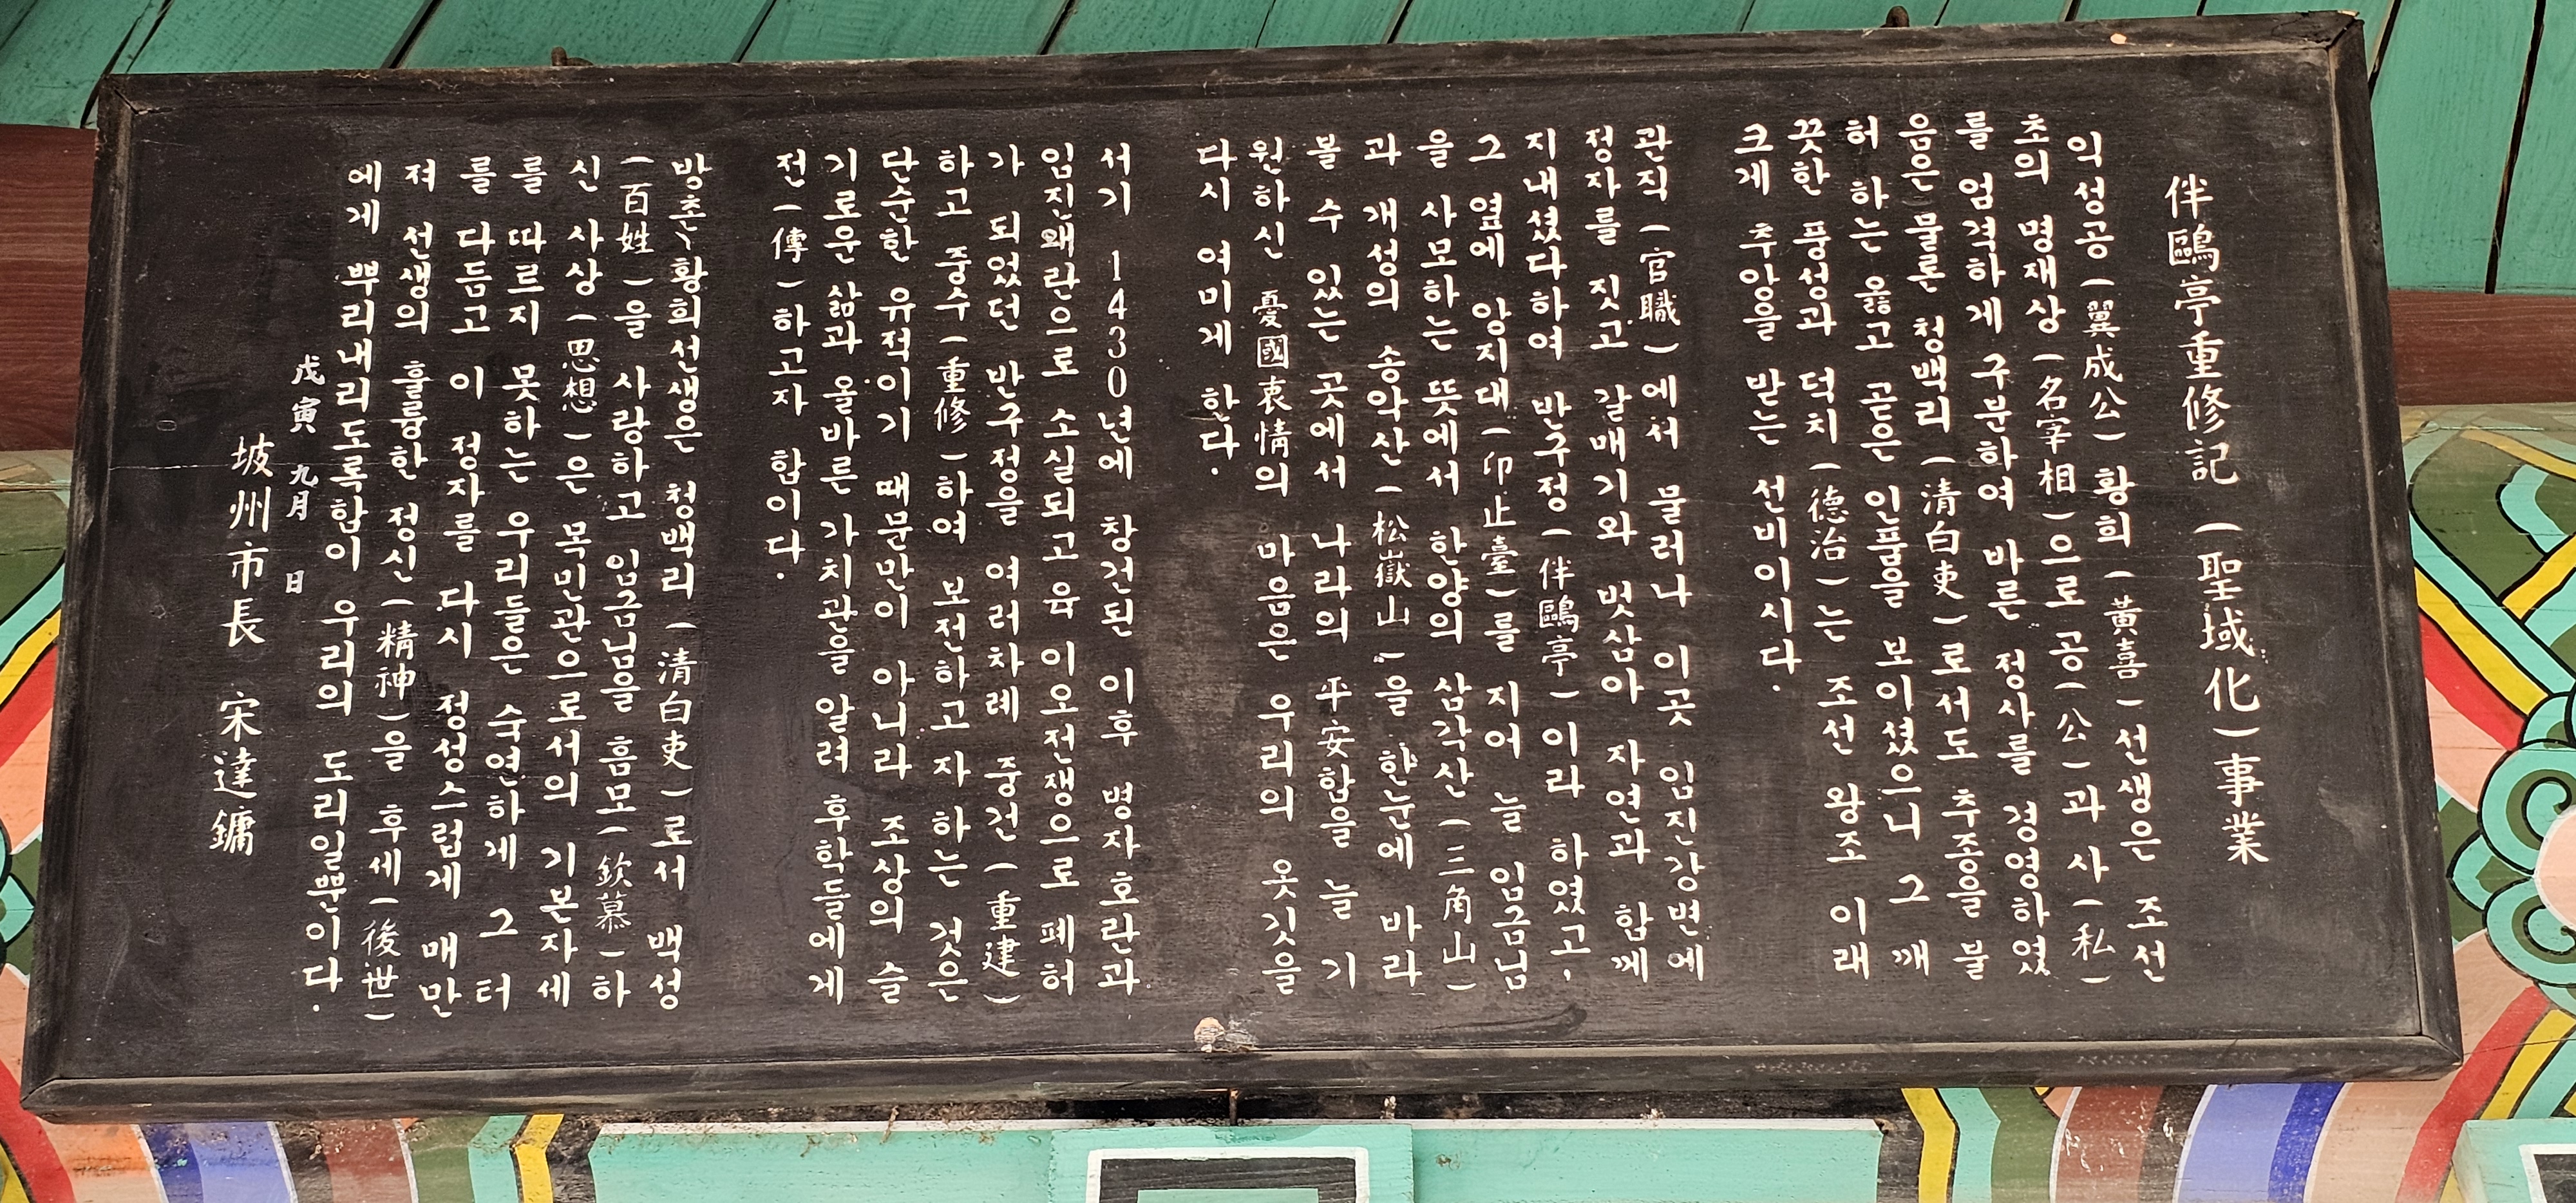 伴鷗亭重修記 (聖域化) 事業
익성공 (翼成公) 황희 (黃喜) 선생은 조선
초의 명재상 (名宰相) 으로 공 (公) 과 사 (私)
를 엄격하게 구분하여 바른 정사를 경영하였
음은 물론 청백리 (清白吏) 로서도 추종을 불
허 하는 옳고 곧은 인품을 보이셨으니 그 깨
끗한 풍성과 덕치 (德治) 는 조선 왕조 이래
크게 추앙을 받는 선비이시다.
관직 (官職) 에서 물러나 이곳 임진강변에
정자를 짓고 갈매기와 벗삼아 자연과 함께
지내셨다하여 반구정 (伴鷗亭) 이라 하였고,
그 옆에 앙지대 (卬止臺) 를 지어 늘 임금님
을 사모하는 뜻에서 한양의 삼각산 (三角山)
과 개성의 송악산 (松嶽山) 을 한눈에 바라
볼 수 있는 곳에서 나라의 平安함을 늘 기
원하신 憂國衷情의 마음은 우리의 옷깃을
다시 여미게 한다.
서기 1430년에 창건된 이후 병자호란과
임진왜란으로 소실되고 육 이오전쟁으로 폐허
가 되었던 반구정을 여러차례 중건 (重建)
하고 중수 (重修) 하여 보전하고 자 하는 것은
단순한 유적이기 때문만이 아니라 조상의 슬
기로운 삶과 올바른 가치관을 알려 후학들에게
전 (傳) 하고자 함이다.
방촌、황희선생은 청백리 (清白吏) 로서 백성
(百姓) 을 사랑하고 임금님을 흠모 (欽慕) 하
신 사상 (思想) 은 목민관으로서의 기본자세
를 따르지 못하는 우리들은 숙연하게 그 터
를 다듬고 이 정자를 다시 정성스럽게 매만
져 선생의 훌륭한 정신 (精神) 을 후세 (後世)
에게 뿌리내리도록함이 우리의 도리일뿐이다.
戊寅 九月 日
坡州市長 宋達鏞